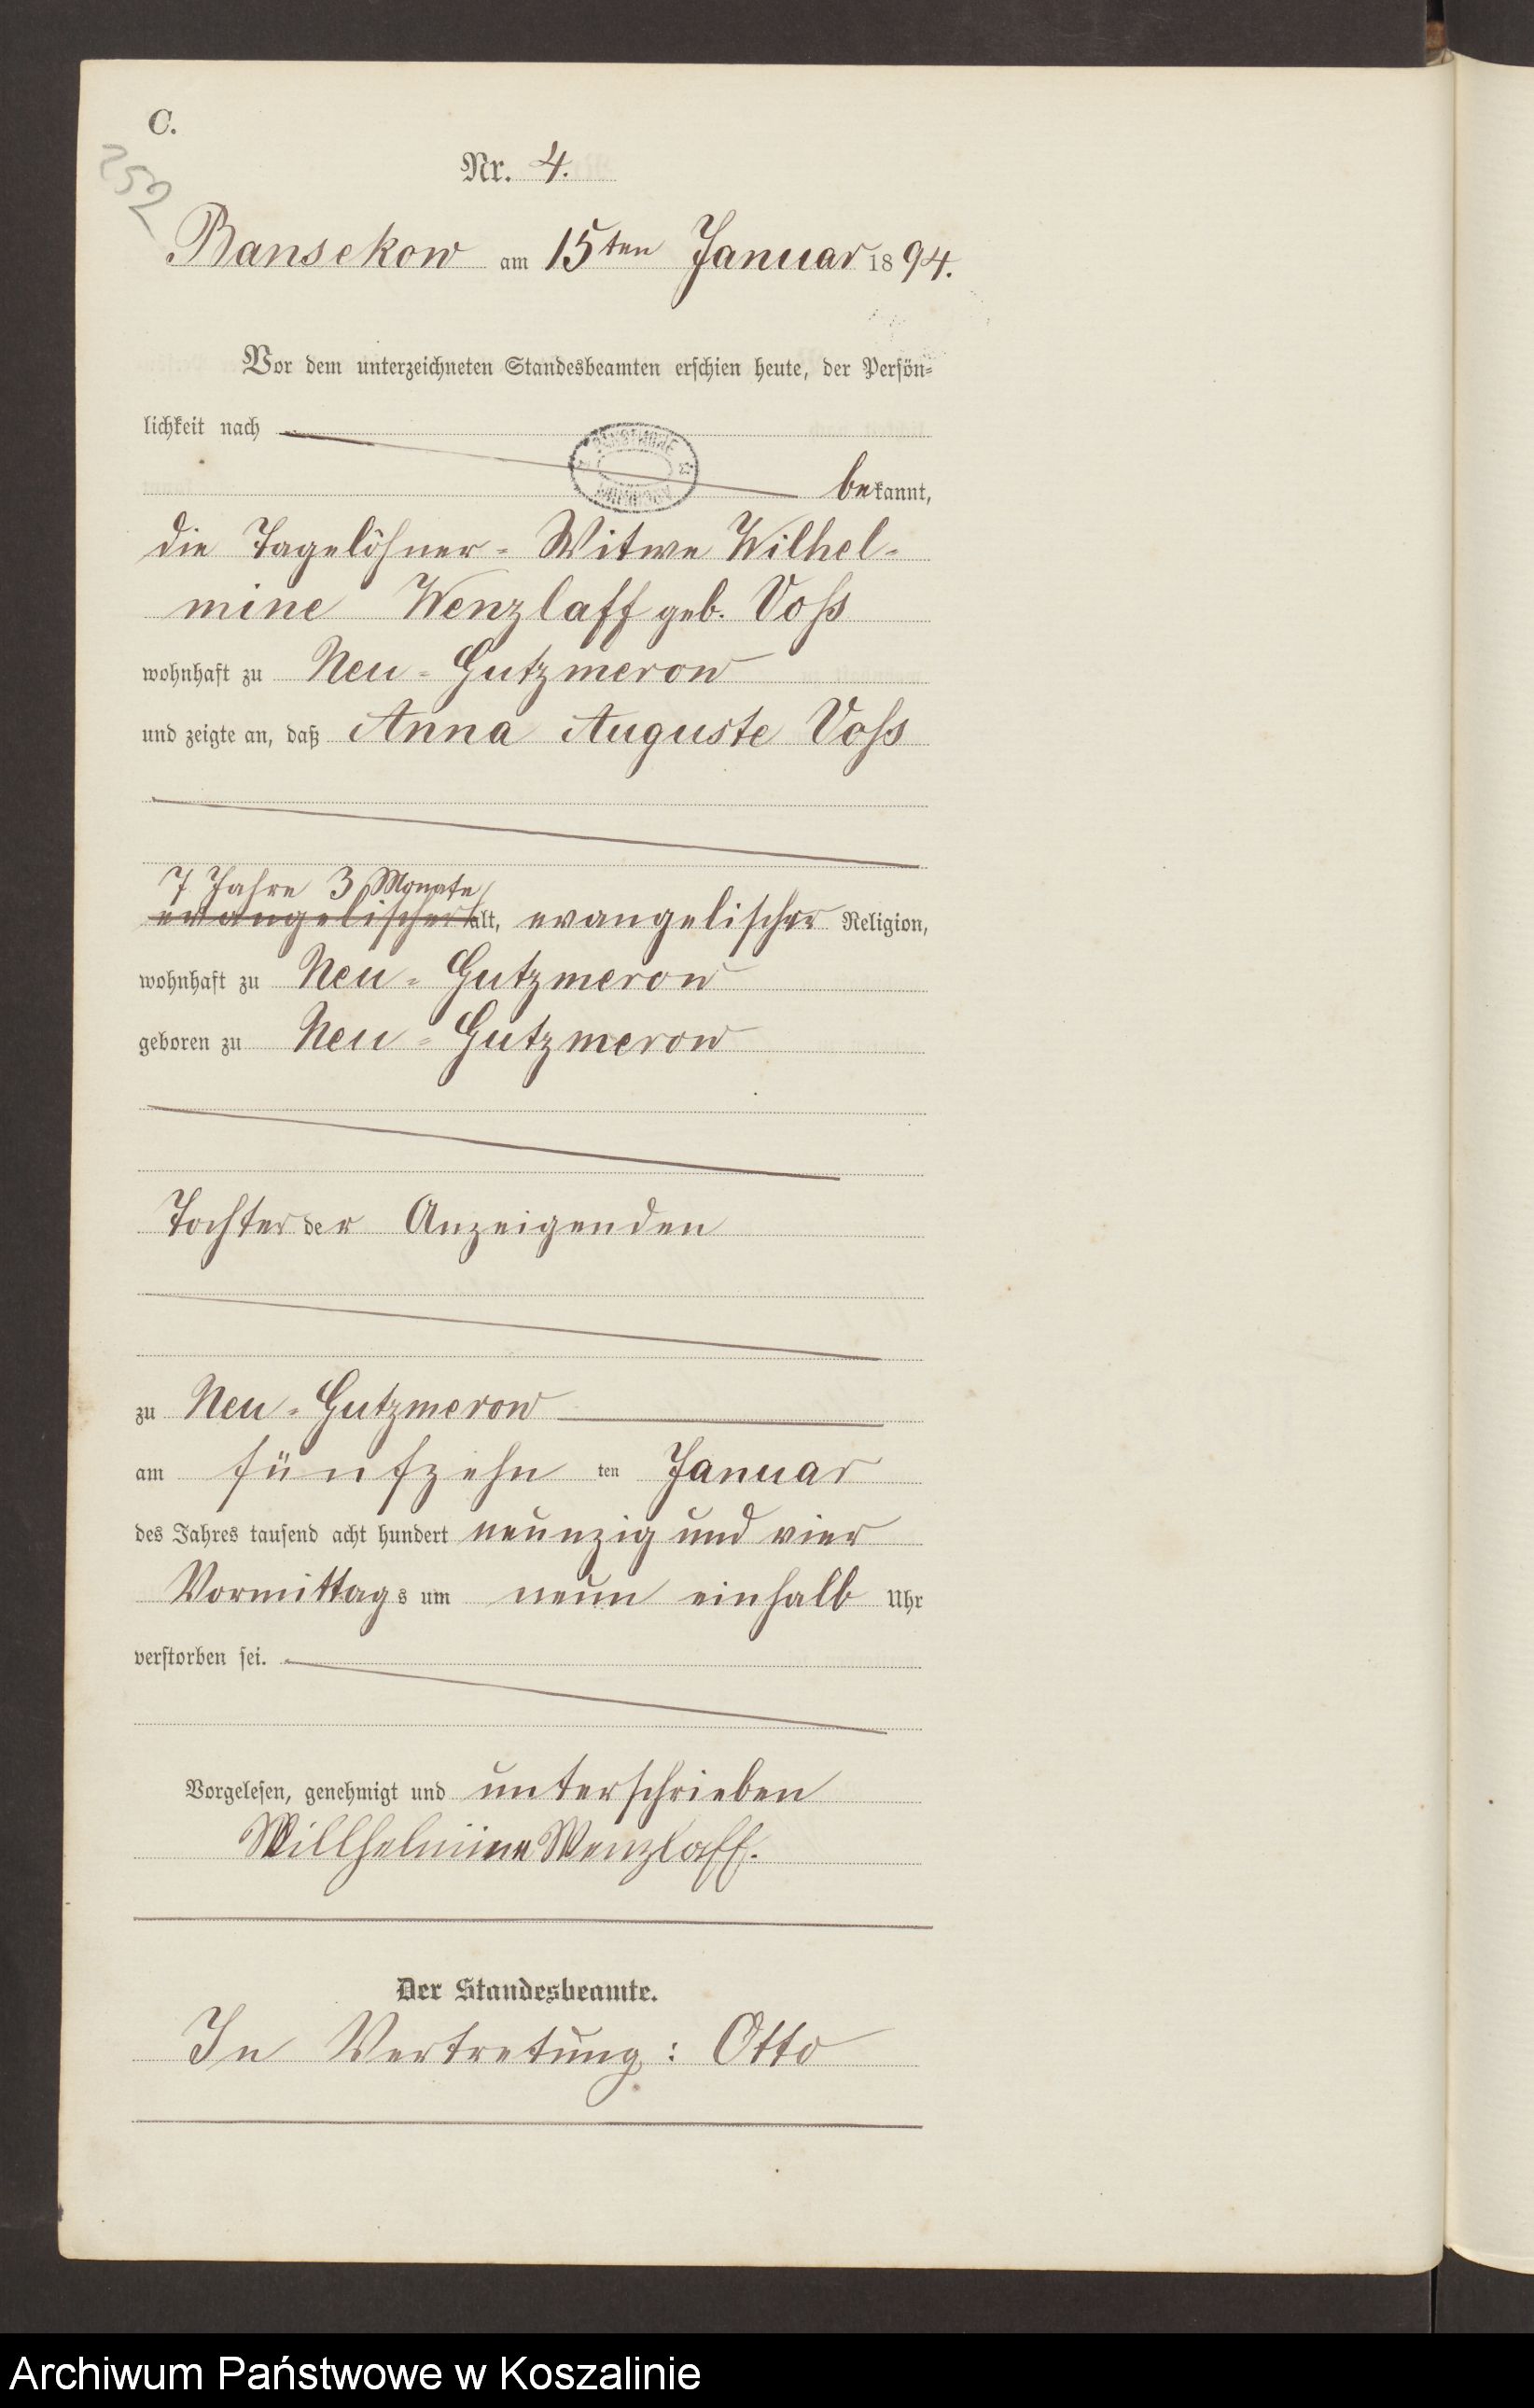 C.
252
Nr. 4.
Bansekow am 15ten Januar 1894.
Vor dem unterzeichneten Standesbeamten erschien heute, der Persön-
lichkeit nach
bekannt,
die Tagelöhner-Witwe Wilhel-
mine Wenzlaff geb. Voss
wohnhaft zu Neu-Gutzmerow
und zeigte an, daß Anna Auguste Voss
7 Jahre 3 Monate
evangelischer alt, evangelischer Religion,
wohnhaft zu Neu-Gutzmerow
geboren zu Neu-Gutzmerow
Tochter der Anzeigenden
zu Neu-Gutzmerow
am fünfzehn ten Januar
des Jahres tausend acht hundert neunzig und vier
Vormittags um neun einhalb Uhr
verstorben sei.
Vorgelesen, genehmigt und unterschrieben
Willhelmine Wenzlaff.
Der Standesbeamte.
In Vertretung: Otto
Archiwum Państwowe w Koszalinie